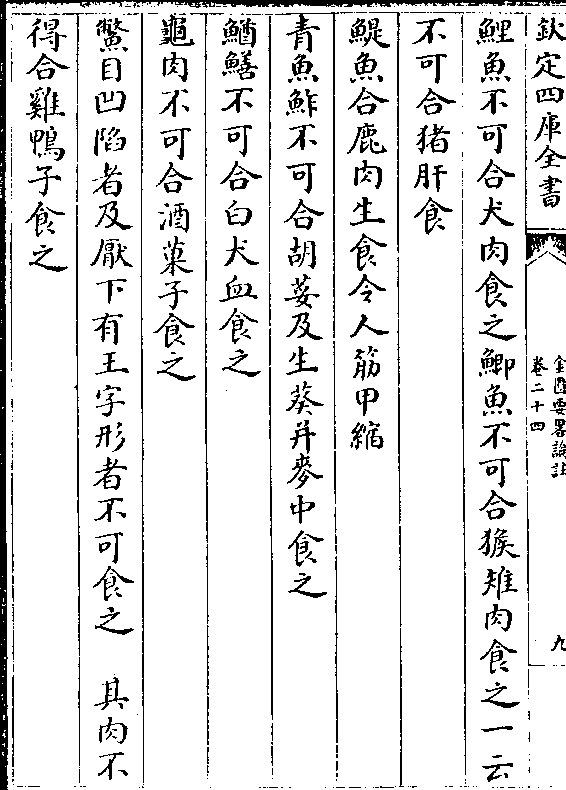 欽定四庫全書
金匱要畧論註
卷二十四
九
鯉魚不可合犬肉食之鯽魚不可合猴雉肉食之一云
不可合猪肝食
鯷魚合鹿肉生食令人筋甲縮
青魚鮓不可合胡荽及生葵并麥中食之
鰌鱔不可合白犬血食之
龜肉不可合酒菓子食之
鱉目凹陷者及厭下有王字形者不可食之 其肉不
得合雞鴨子食之